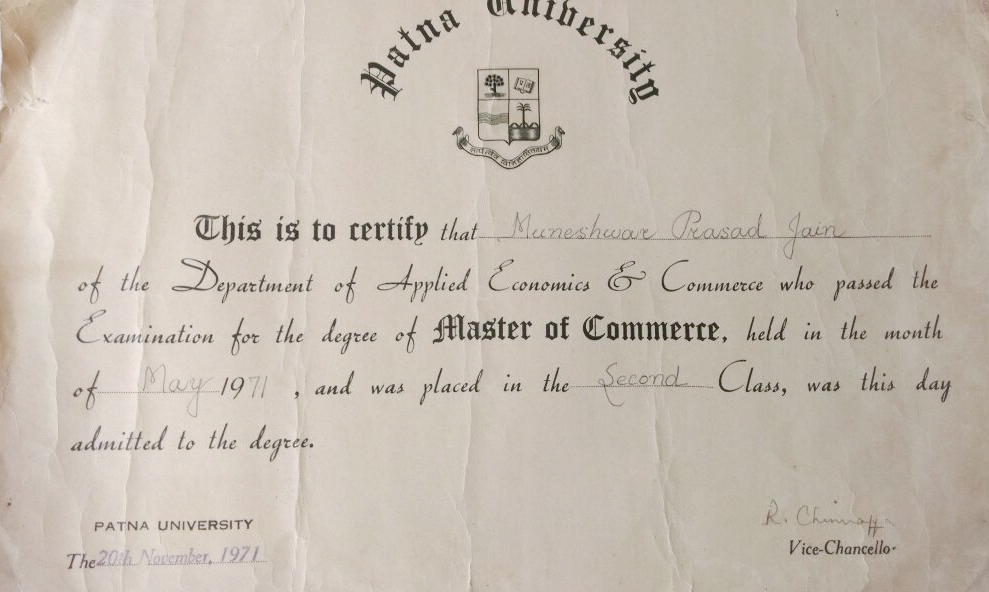 Patna University
This is to certify that Muneshwar Prasad Jain
of the Department of Applied Economics & Commerce who passed the
Examination for the degree of Master of Commerce, held in the month
of May 1971, and was placed in the Second Class, was this day
admitted to the degree.
PATNA UNIVERSITY
The 20th November, 1971
R.
Vice-Chancello